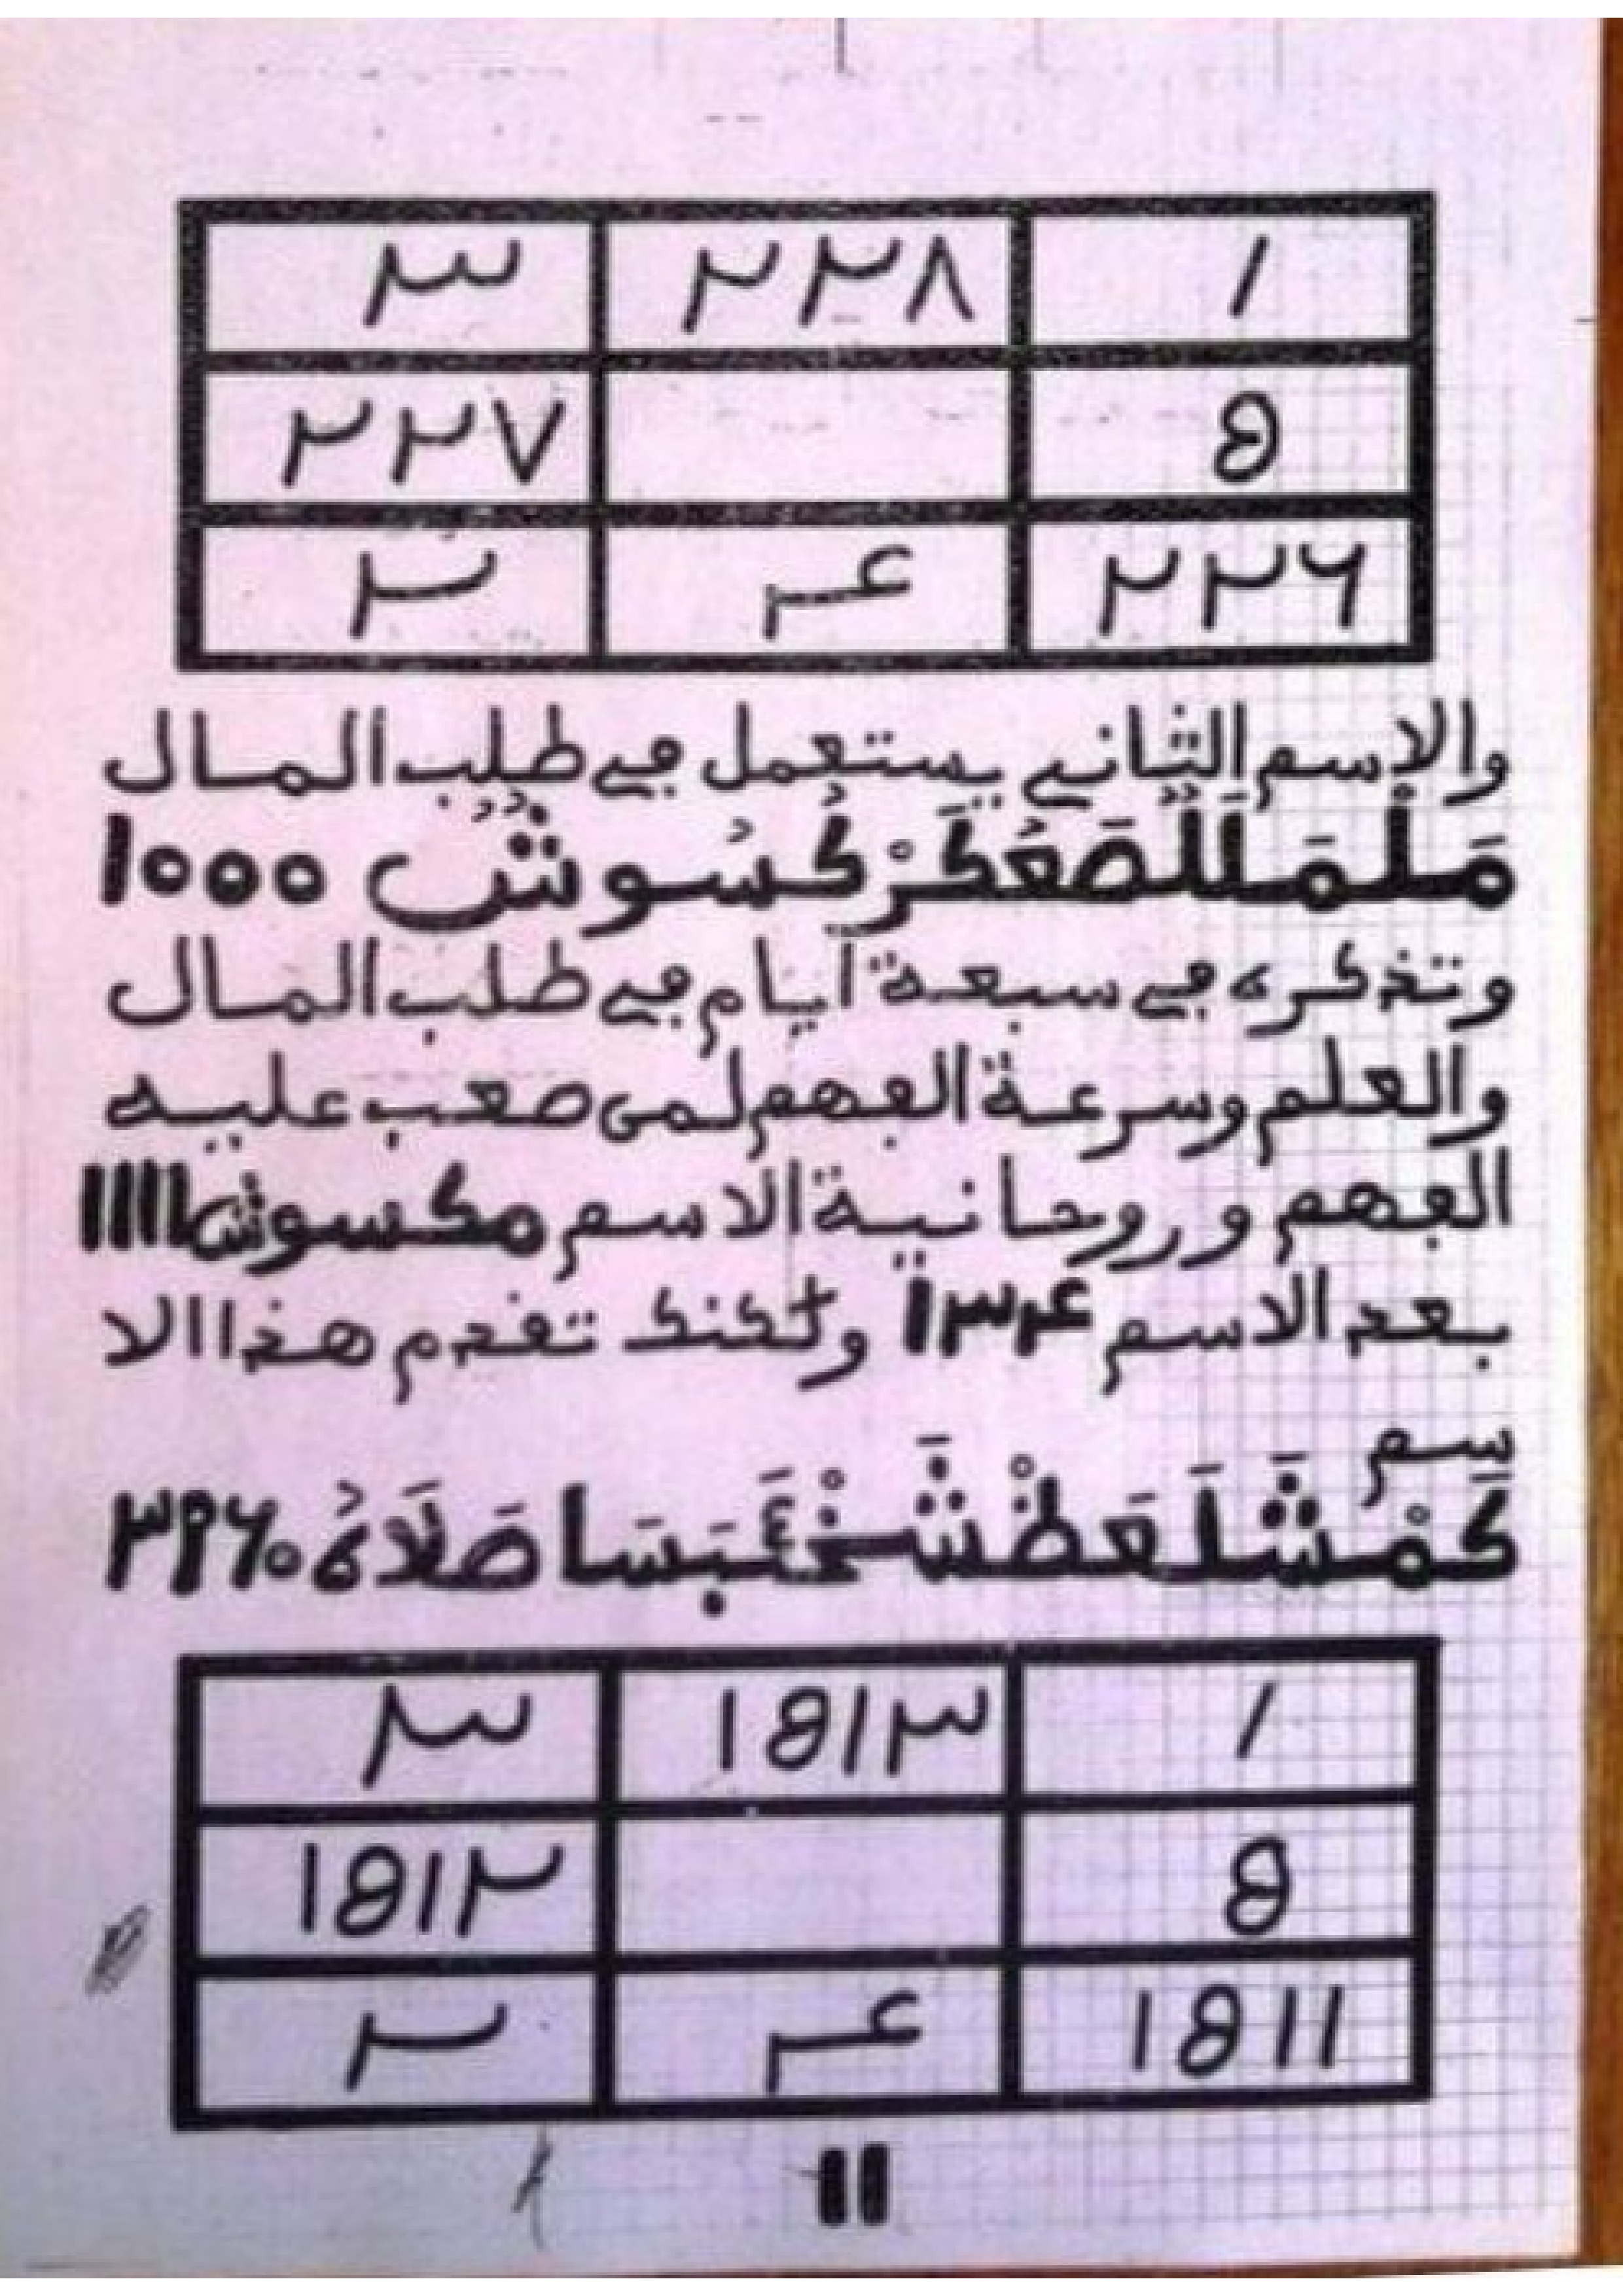 ٣ ٢٢٨ ١
٢٢٧ ٥
٢ ٤ ٢٢٦
والاسم الثاني يستعمل في طلب المال
مَلْمَلَلُصَعُكَرْكُسُوشٍ ١٠٠٠
وتذكره في سبعة أيام في طلب المال
والعلم وسرعة الفهم لمن صعب عليه
الفهم وروحانية الاسم مكسوش ١١١١
بعد الاسم ١٣٤ ولكنك تقدم هذا الا
سم
كَمْشَلَعَطْشَّخْعَبَسَاصَلَاةُ ٣٩٦٠
٣ ١٥١٣ ١
١٥١٢ ٥
٢ ٤ ١٥١١
١١